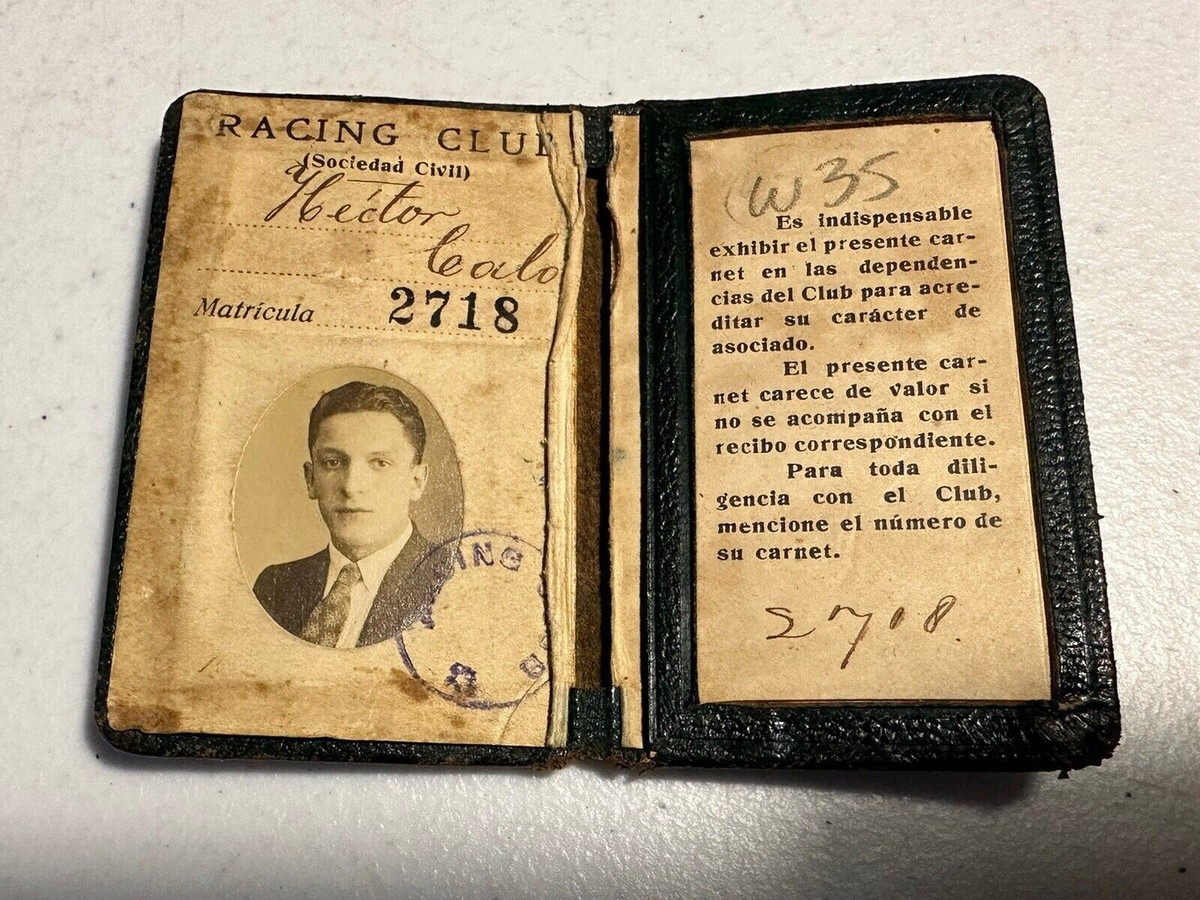 RACING CLUB
(Sociedad Civil)
Héctor
Calo
Matrícula 2718
W 35
Es indispensable
exhibir el presente car-
net en las dependen-
cias del Club para acre-
ditar su carácter de
asociado.
El presente car-
net carece de valor si
no se acompaña con el
recibo correspondiente.
Para toda dili-
gencia con el Club,
mencione el número de
su carnet.
2718